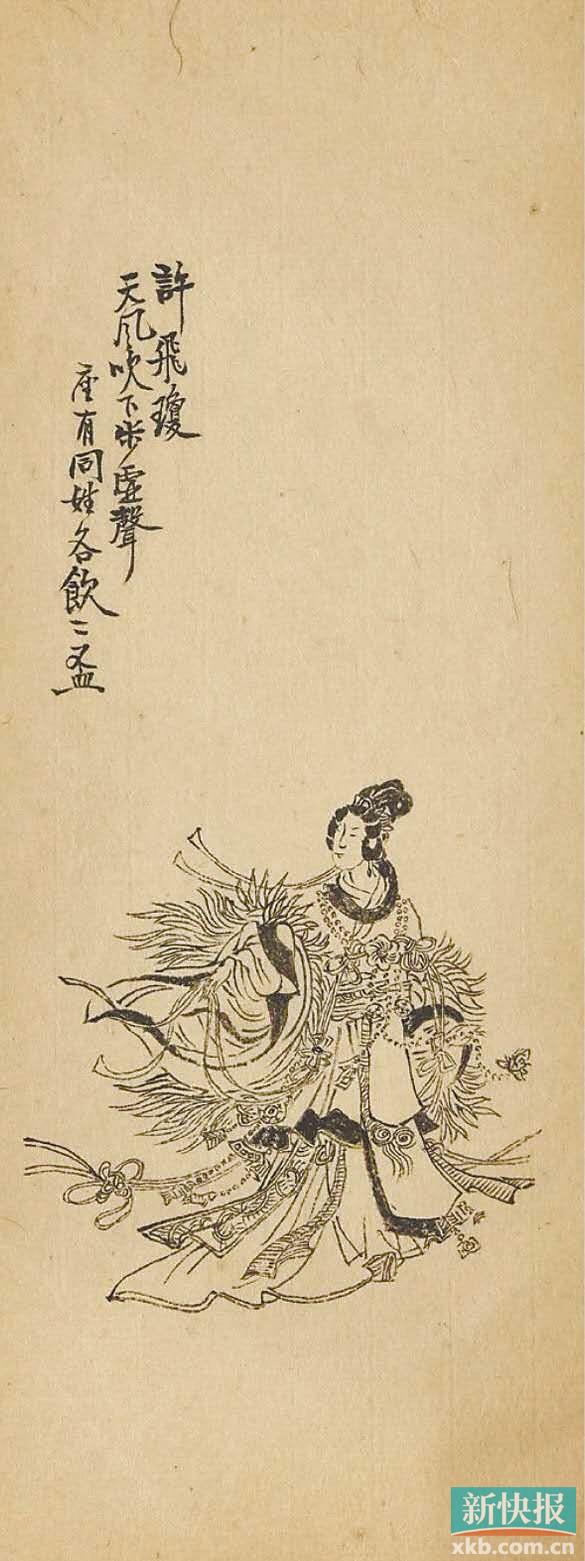 許飛瓊
天风吹下步虛聲
座有同姓各飲二盃
新快报
xkb.com.cn